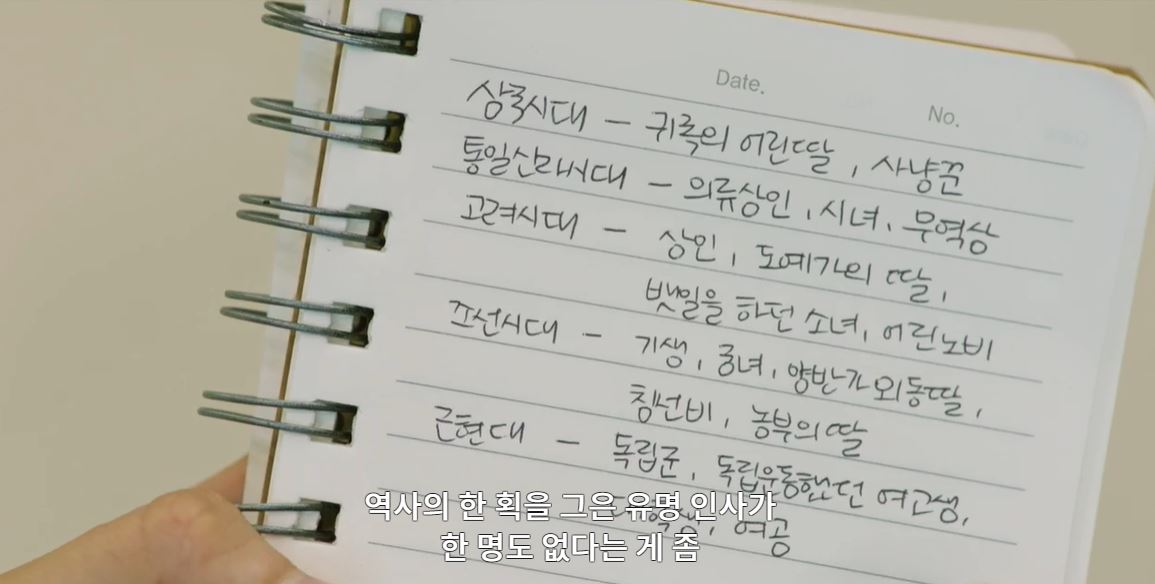 Date. No.
삼국시대 – 귀족의 어린딸, 사냥꾼
통일신라시대 – 의류상인, 시녀, 무역상
고려시대 – 상인, 도예가의 딸,
뱃일을 하던 소녀, 어린노비
조선시대 – 기생, 궁녀, 양반가 외동딸,
침선비, 농부의 딸
근현대 – 독립군, 독립운동했던 여고생,
여공
역사의 한 획을 그은 유명 인사가
한 명도 없다는 게 좀